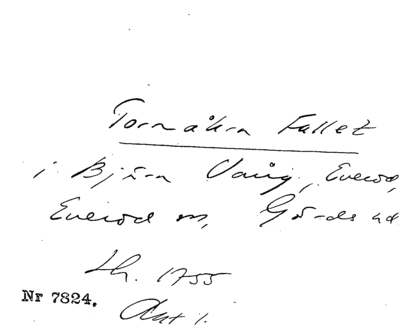 Tornåkra Fallet
i Björn Vång, Everöd,
Everöd sn, Gärds hd
Lh. 1755
Nr 7824. Akt 1.